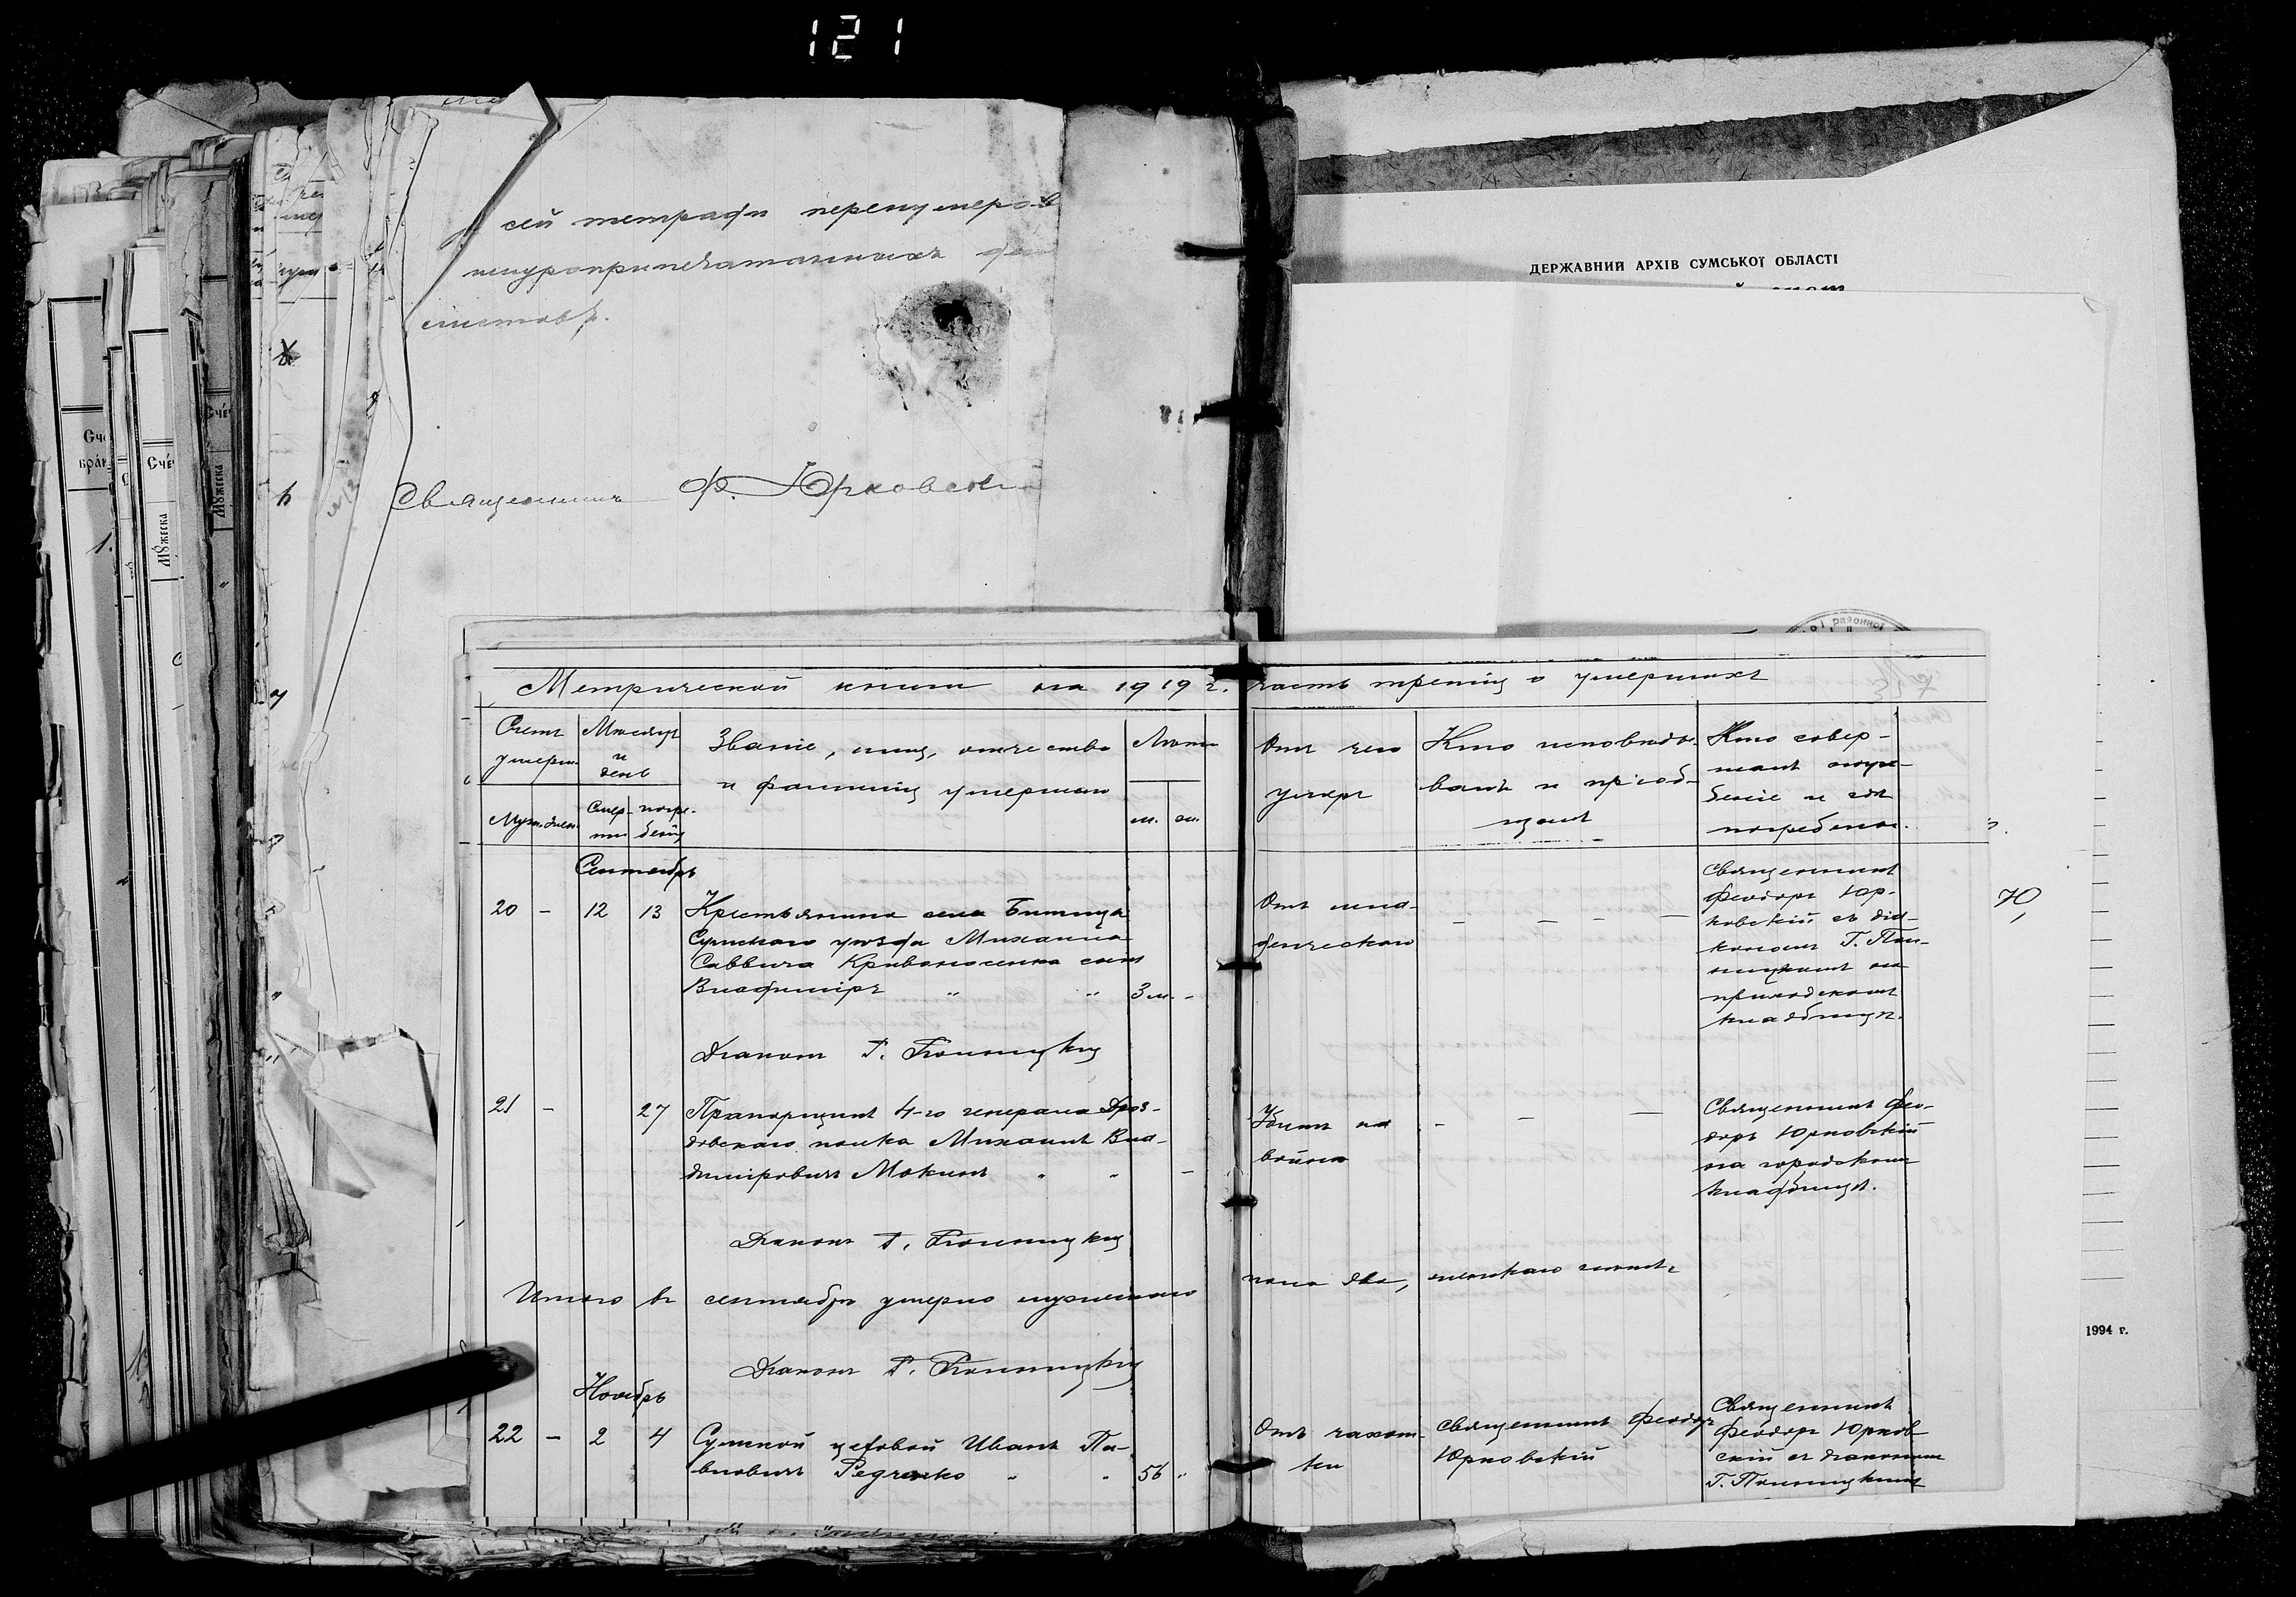 121
сей тетради перенумеров
шнуроприпечатанныхъ
листовъ.
Священникъ Ф. Юрковскі
ДЕРЖАВНИЙ АРХІВ СУМСЬКОЇ ОБЛАСТІ
районної
Метрической книги на 1919 г. часть третія о умершихъ
Счетъ умерш.
Муж. Жен.
Мѣсяцъ и день
Смерти
погребенія
Званіе, имя, отчество
и фамилія умершаго
Лѣта
м. ж.
Отъ чего
умеръ
Кто исповѣды-
валъ и пріоб-
щалъ
Кто совер-
шалъ погре-
беніе и гдѣ
погребены.
Сентябрь
20 - 12 13
Крестьянина села Битицы
Сумскаго уѣзда Михаила
Саввича Кривоносенка сынъ
Владиміръ " " 3 м. -
Отъ мла-
денческаго
- - - -
Священникъ
Феодоръ Юр-
ковскій съ діа-
кономъ Г.
на
приходскомъ
кладбищѣ.
70,
Діаконъ Г.
21 - 27
Прапорщикъ 4-го генерала Дроз-
довскаго полка Михаилъ Вла-
диміровичъ Мокинъ " " -
Убитъ на
войнѣ
- - -
Священникъ Фео-
доръ Юрковскій
на городскомъ
кладбищѣ.
Діаконъ Г.
Итого въ сентябрѣ умерло мужескаго пола два, женскаго
Діаконъ Г.
Ноябрь
22 - 2 4
Сумской цеховой Иванъ Па-
вловичъ Редченко " " 56 "
Отъ чахот-
ки
Священникъ Феодоръ
Юрковскій
Священникъ
Феодоръ Юрков-
скій съ діакономъ
Г.
1994 г.